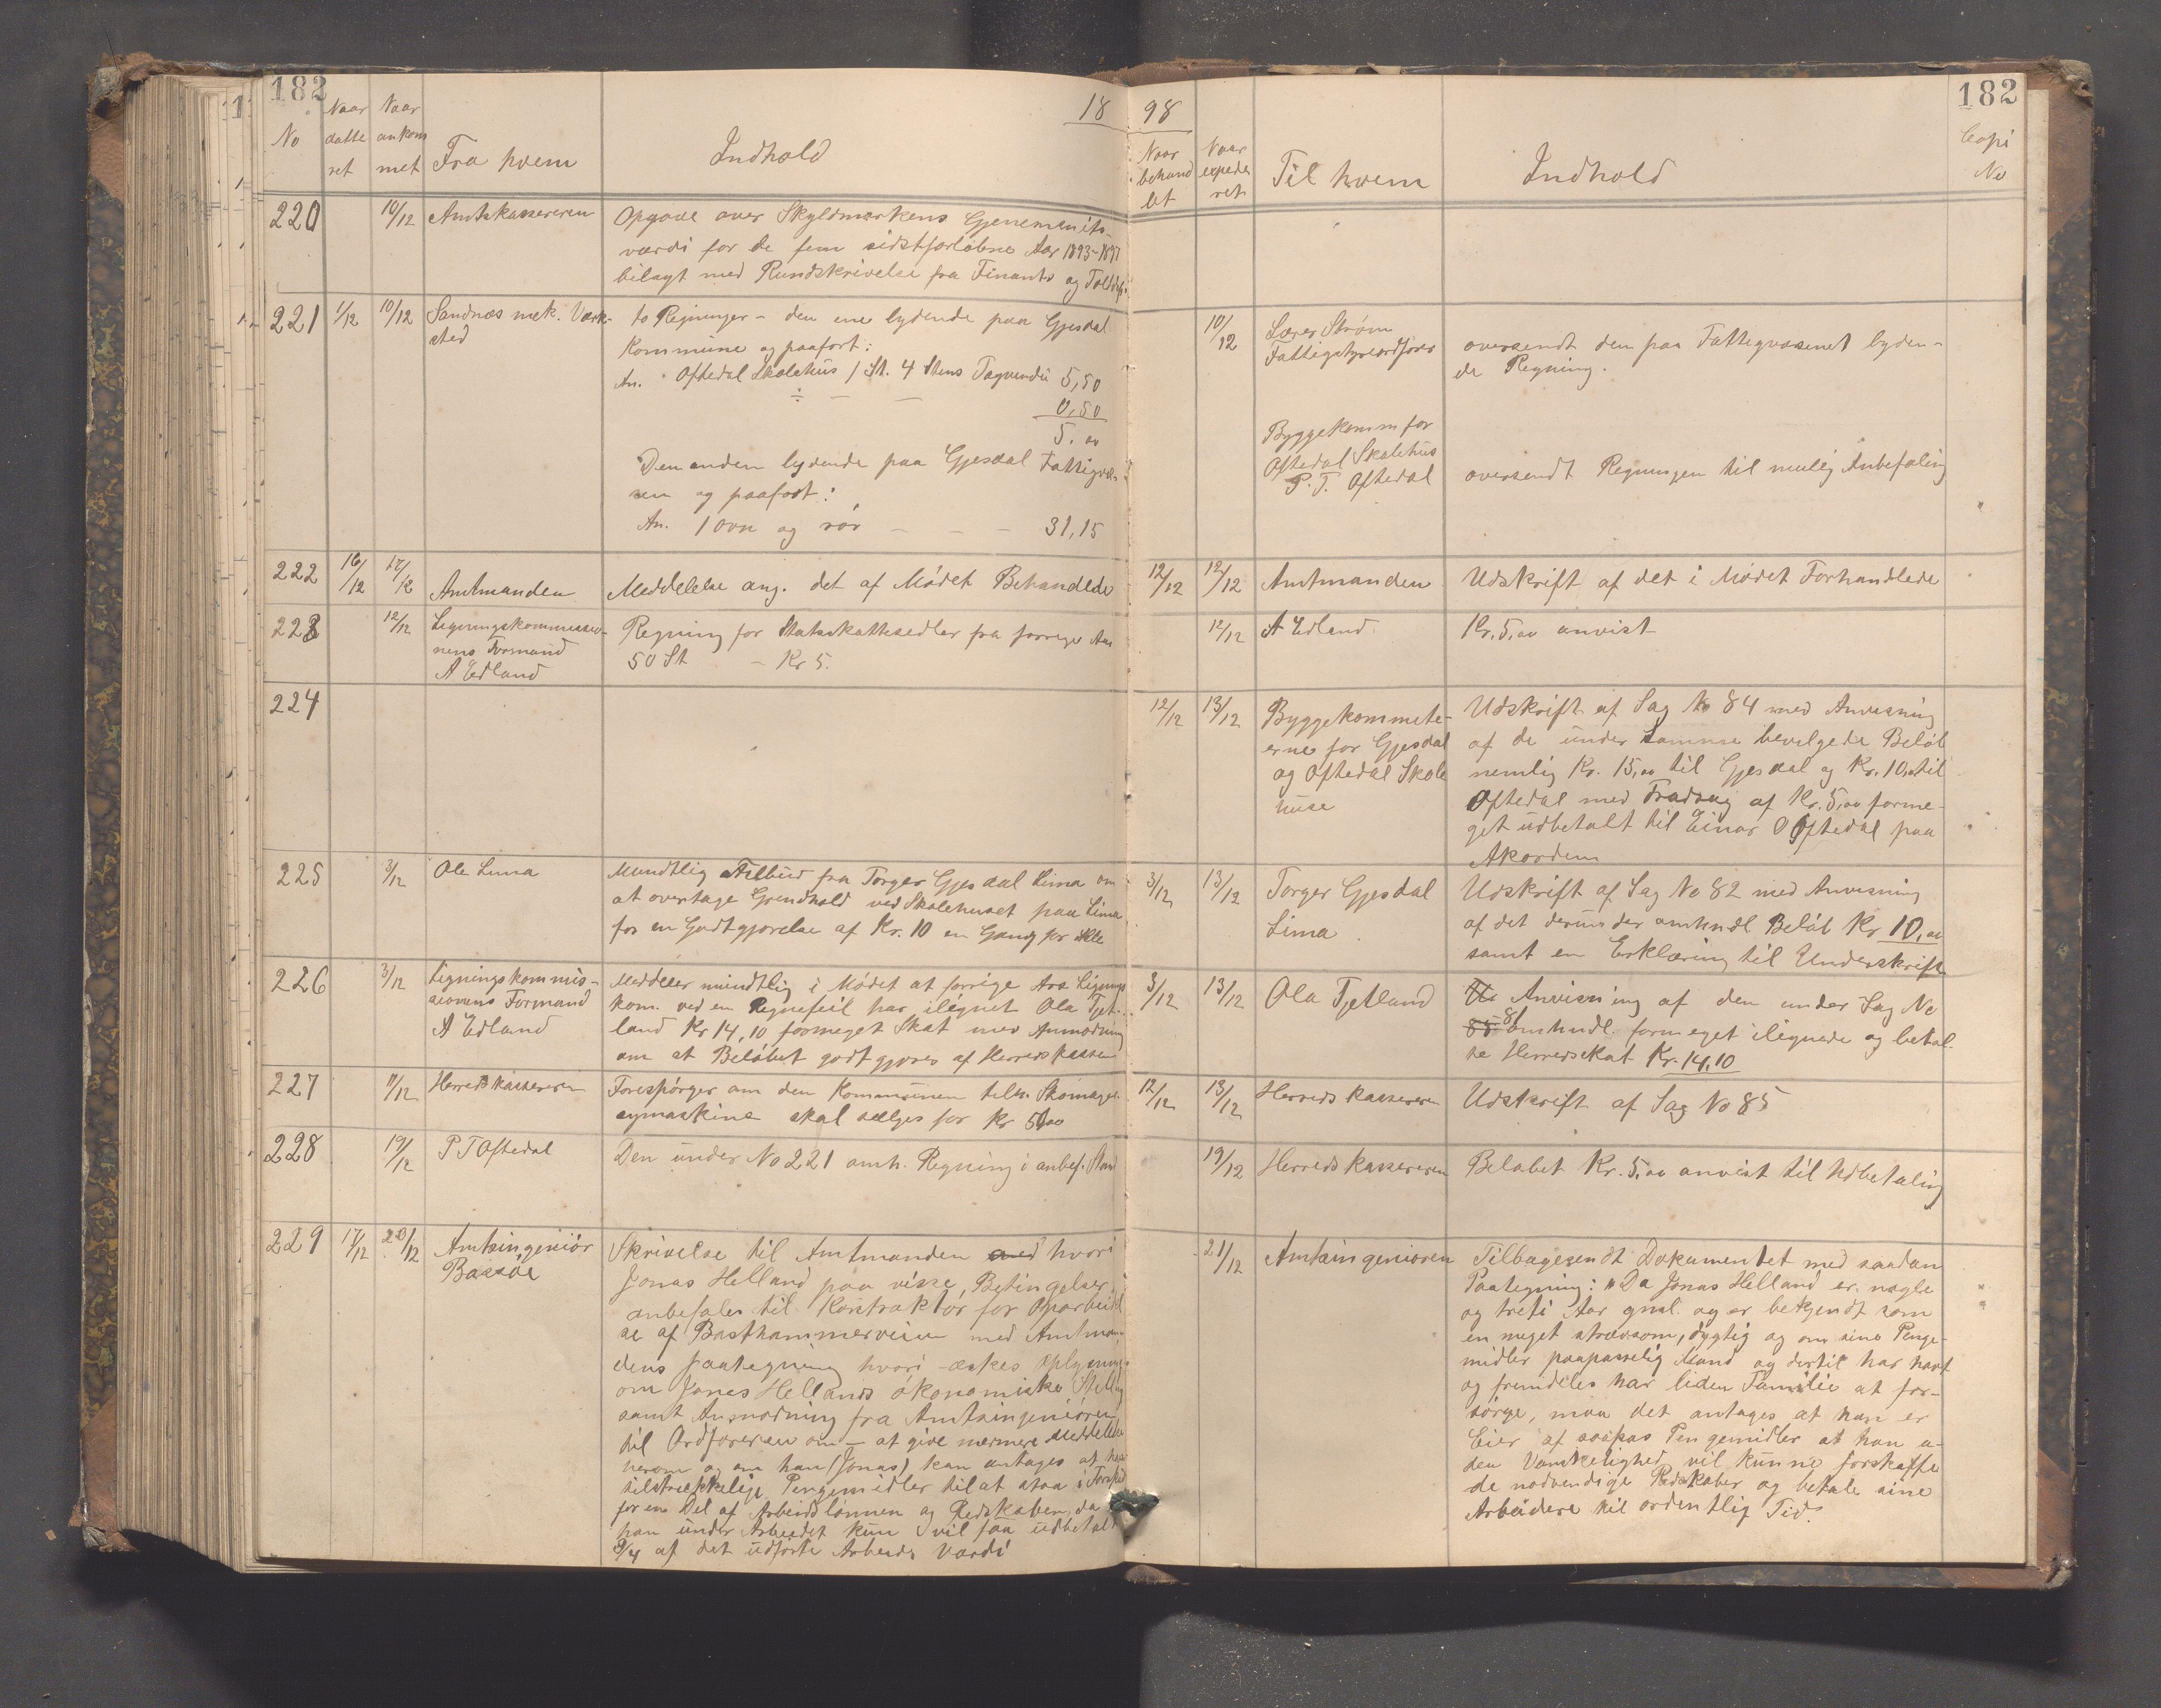 182
18
No
Naar
datte
ret
Naar
ankom
met
Fra hvem
Indhold
220
10/12
Amtskassereren
Opgave over Skyldmarkens Gjenemsnits-
værdi for de fem sidstforløbne Aar 1893-1897
bilagt med Rundskrivelse fra Finants og Tolddep.
221
1/12
10/12
Sandnæs mek. Værk-
sted
to Regninger - den ene lydende paa Gjesdal
Kommune og paaført:
An. Oftedal Skolehus 1 St. 4 Stens 5,50
÷ — — 0,50
5.00
Den anden lydende paa Gjesdal Fattigvæ-
sen og paaført:
An. 1 ovn og rør — — — 31,15
222
16/12
17/12
Amtmanden
Meddelelse ang. det af Mødet Behandlede
223
12/12
Ligningskommissio-
nens Formand
A Edland
Regning for Statsskattesedler fra forrige Aar
50 St — Kr 5.
224
225
3/12
Ole Lima
Mundtlig Tilbud fra Torger Gjesdal Lima om
at overtage Grindhold ved Skolehuset paa Lima
for en Godtgjørelse af Kr. 10 en Gang for alle
226
3/12
Ligningskommis-
sionens Formand
A Edland
Meddeler mundtlig i Mødet at forrige Ars Lignings
kom. ved en Regnefeil har ilignet Ola Tjet-
land Kr 14,10 formeget Skat med Anmodning
om at Beløbet godtgjøres af Herredskassen
227
11/12
Herredskassereren
Forespørger om den Kommunen tilh. Skomager
symaskine skal sælges for Kr 50,00
228
19/12
P T Oftedal
Den under No 221 omh. Regning i anbef. Stand
229
17/12
20/12
Amtsingeniør
Bassøe
Skrivelse til Amtmanden med hvori
Jonas Helland paa visse Betingelser
anbefales til Kontraktør for Oparbeidel
se af Basthammerveien med Amtman-
dens paategning hvori æskes Oplysning
om Jonas Hellands økonomiske Stilling
samt Anmodning fra Amtsingeniøren
til Ordføreren om — at give nærmere Meddelelse
herom og om han (Jonas) kan antages at have
tilstrækkelige Pengemidler til at staa i Forskud
for en Del af Arbeidslønnen og Redskaber, da
han under Arbeidet kun vil faa udbetalt
3/4 af det udførte Arbeids Værdi
98
182
Naar
behand
let
Naar
expede
ret
Til hvem
Indhold
Copi
No
10/12
Lærer Strøm
Fattigstyreordfører
oversendt den paa Fattigvæsenet lyden-
de Regning.
Byggekomm for
Oftedal Skolehus
P. T. Oftedal
oversendt Regningen til mulig Anbefaling
12/12
12/12
Amtmanden
Udskrift af det i Mødet Forhandlede
12/12
A Edland
Kr. 5,00 anvist
12/12
13/12
Byggekommete-
erne for Gjesdal
og Oftedal Skole
huse
Udskrift af Sag No 84 med Anvisning
af de under samme bevilgede Beløb
nemlig Kr. 15,00 til Gjesdal og Kr. 10,00 til
Oftedal med Fradrag af Kr. 5,00 forme-
get udbetalt til Einar O Oftedal paa
Akorden
3/12
13/12
Torger Gjesdal
Lima
Udskrift af Sag No 82 med Anvisning
af det derunder omhndl Beløb Kr 10,00
samt en Erklæring til Underskrift
3/12
13/12
Ola Tjetland
Anvisning af den under Sag No
81 omhndl. formeget ilignede og betal-
te Herredsskat Kr. 14,10
12/12
13/12
Herredskassereren
Udskrift af Sag No 85
19/12
Herredskassereren
Beløbet Kr. 5,00 anvist til Udbetaling
21/12
Amtsingeniøren
Tilbagesendt Dokumentet med saadan
Paategning: "Da Jonas Helland er nogle
og treti Aar gml. og er bekjendt som
en meget strævsom, dygtig og om sine Penge-
midler paapasselig Mand og dertil har havt
og fremdeles har liden Familie at for-
sørge, maa det antages at han er
Eier af saapas Pengemidler at han u-
den Vanskelighed vil kunne forskaffe
de nødvendige Redskaber og betale sine
Arbeidere til ordentlig Tid.